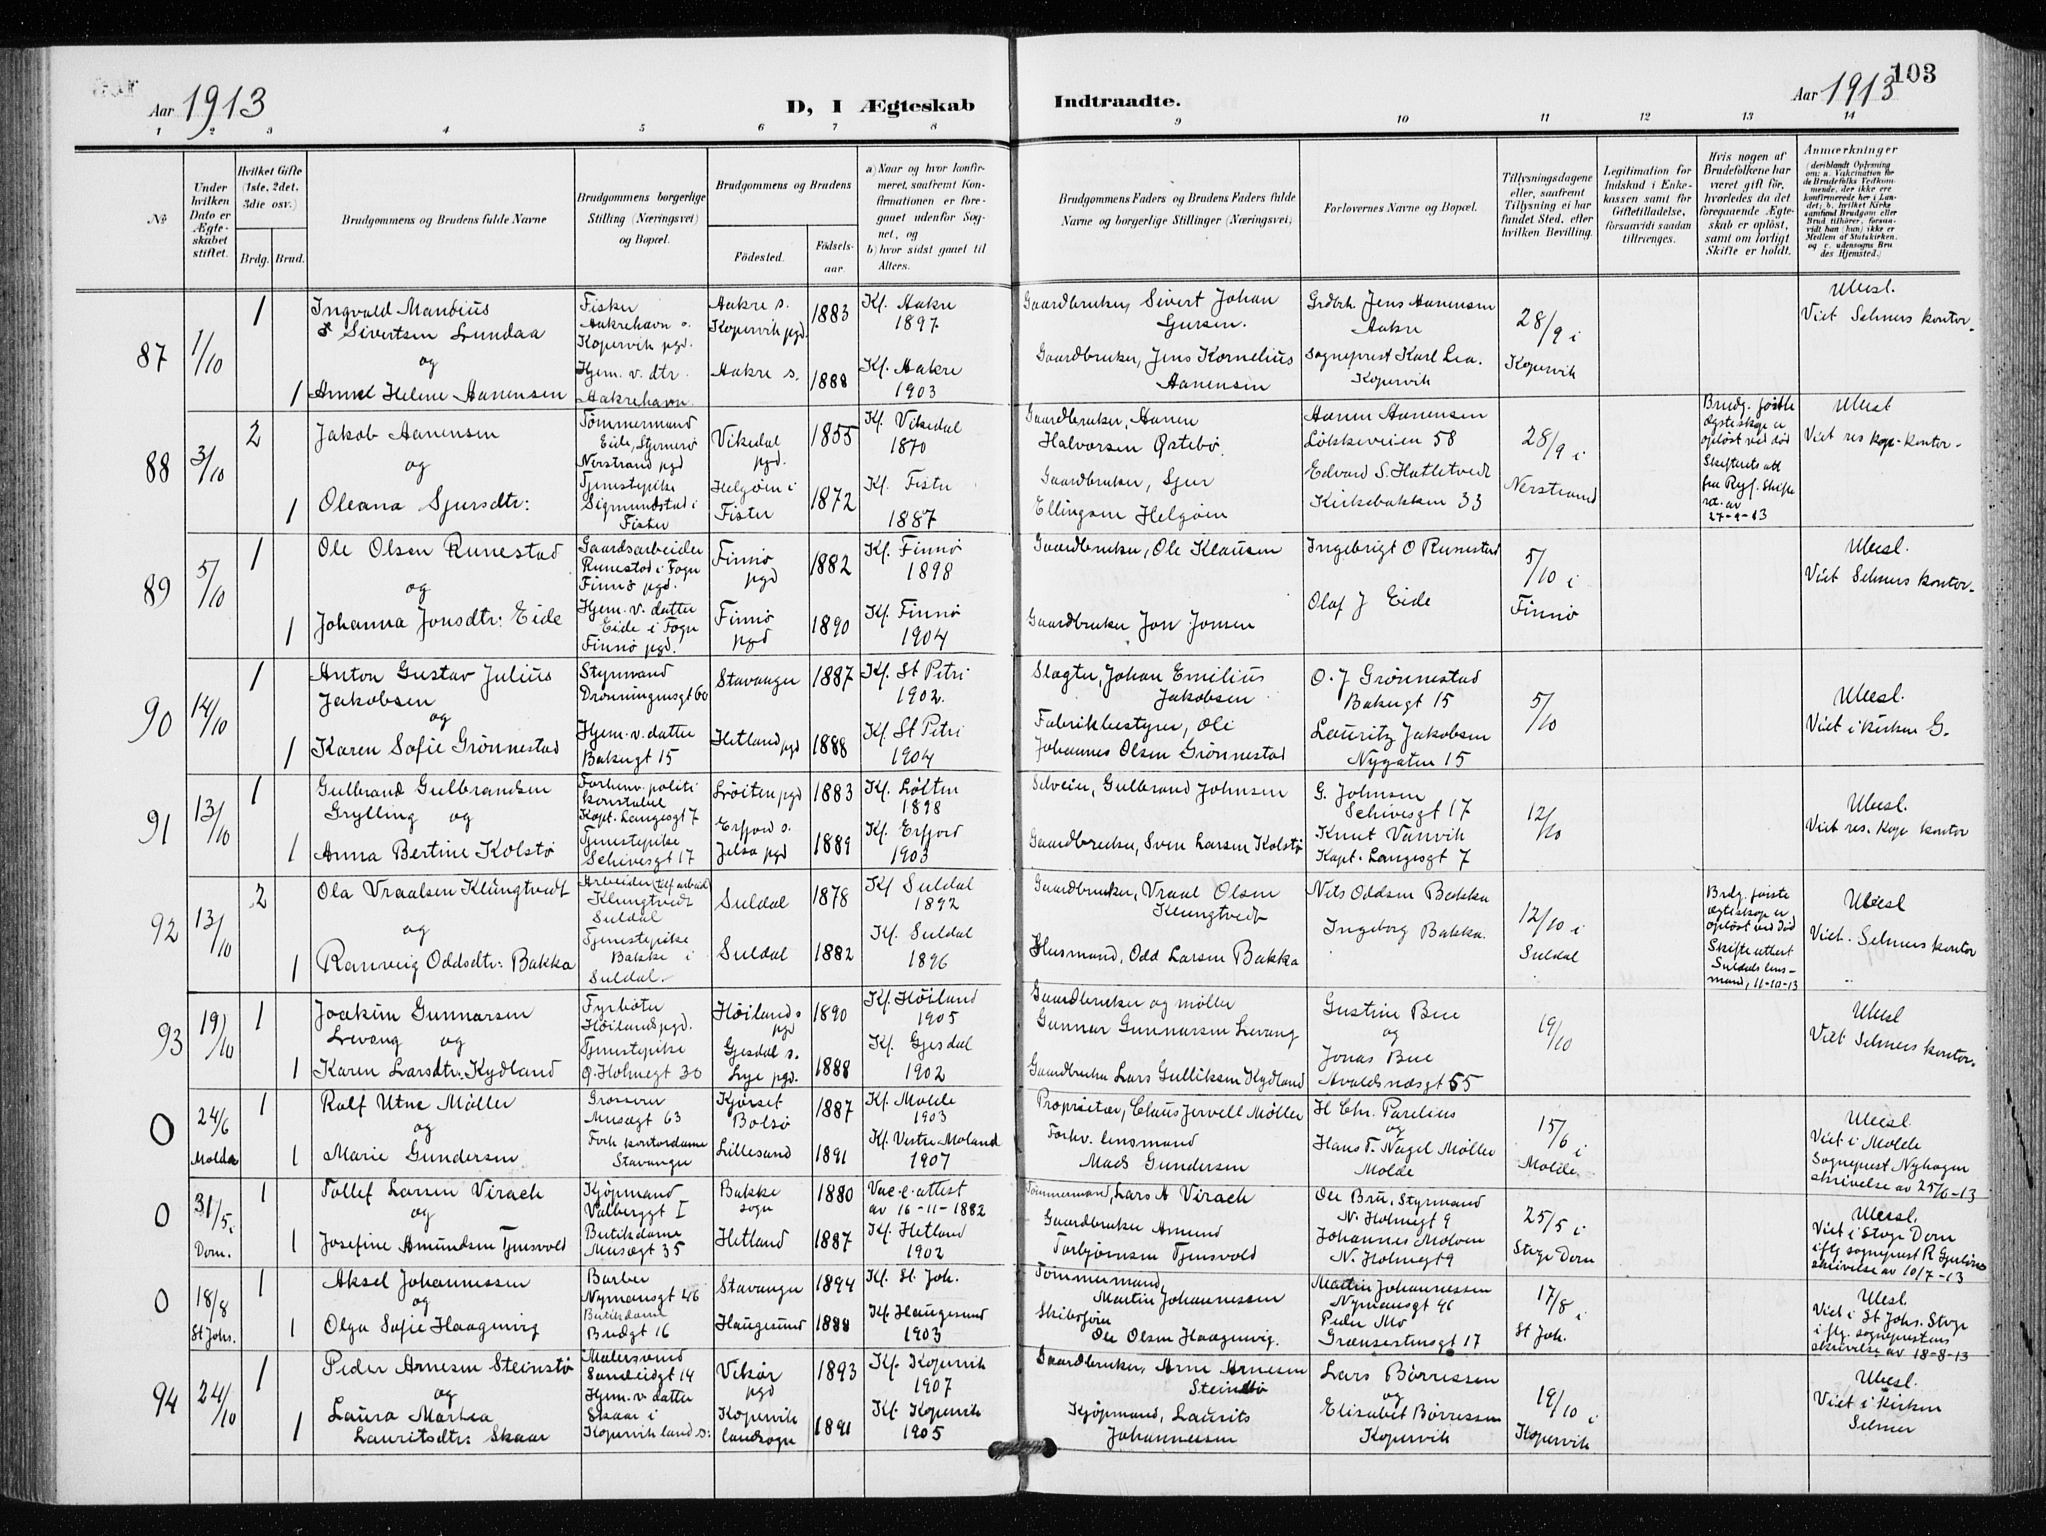 Aar 1913
D, I Ægteskab
Indtraadte.
Aar 1913
103
1 2 3 4 5 6 7 8 9 10 11 12 13 14
№
Under hvilken Dato er Ægteskabet stiftet.
Hvilket Gifte (1ste, 2det, 3die osv.)
Brdg. Brud.
Brudgommens og Brudens fulde Navne
Brudgommens borgerlige Stilling (Næringsvei) og Bopæl.
Brudgommens og Brudens
Fødested.
Fødselsaar.
a) Naar og hvor konfirmeret, saafremt Konfirmationen er foregaaet udenfor Sognet, og
b) hvor sidst gaaet til Alters.
Brudgommens Faders og Brudens Faders fulde Navne og borgerlige Stillinger (Næringsvei)
Forlovernes Navne og Bopæl.
Tillysningsdagene eller, saafremt Tillysning ei har fundet Sted, efter hvilken Bevilling.
Legitimation for Indskud i Enkekassen samt for Giftetilladelse, forsaavidt saadan tiltrænges.
Hvis nogen af Brudefolkene har været gift før, hvorledes da det foregaaende Ægteskab er opløst, samt om lovligt Skifte er holdt.
Anmærkninger
87
1/10
1
Ingvald Mandius
Sivertsen Lundaa
og
1
Helene Aanensen
Fisker
Aakrehavn s.
Kopervik pgd.
Hjem. v. dtr.
Aakrehavn.
Aakre s.
Kopervik pgd.
1883
Aakre s.
1888
Kf. Aakre
1897
Kf. Aakre
1903
Gaardbruker, Sivert Johan
Gaardbruker, Jens Kornelius
Aanensen
Grdbrk. Jens Aanensen
Aakre
Sogneprest Karl Lea.
Kopervik
28/9 i
Kopervik
Ubesl.
Viet Selmers kontor.
88
3/10
2
Jakob Aanensen
og
1
Oleana Sjursdtr:
Tømmermand
Nerstrand pgd
Tjenestepike
Sigmundstad i
Fister
Vikedal
pgd.
1855
Helgøen i
Fister
1872
Kf. Vikedal
1870
Kf. Fister
1887
Gaardbruker, Aanen
Halvorsen Østebø.
Gaardbruker, Sjur
Ellingsen Helgøen
Aanen Aanensen
Løkkeveien 58
Edvard S. Hatletvedt
Kirkebakken 33
28/9 i
Nerstrand
Brudg. første
ægteskap er
opløst ved død
Skifteretsatt
fra Ryf. Skifte
ret. av
27-9-13
Ubesl
Viet res kap. kontor.
89
5/10
1
Ole Olsen Runestad
og
1
Johanna Jonsdtr: Eide
Gaardsarbeider
Runestad i Fogn
Finnø pgd.
Hjem. v. datter
Eide i Fogn
Finnø pgd.
Finnø
pgd
1882
Finnø
pgd
1890
Kf. Finnø
1898
Kf. Finnø
1904
Gaardbruker, Ole Klausen
Gaardbruker Jon Jonsen
Ingebrigt O Runestad
Olaf J Eide
5/10 i
Finnø
Ubesl.
Viet Selmers kontor.
90
14/10
1
Anton Gustav Julius
Jakobsen
og
1
Karen Sofie Grønnestad
Styrmand
Dronningensgt 60
Hjem. v. datter
Bakergt 15
Stavanger
1887
Hetland pgd
1888
Kf. St Petri
1902.
Kf. St Petri
1904
Slagter, Johan Emilius
Jakobsen
Fabrikbestyrer, Ole
Johannes Olsen Grønnestad
O. J Grønnestad
Bakergt 15
Lauritz Jakobsen
Nygaten 15
5/10
Ubesl.
Viet i kirken G.
91
13/10
1
Gulbrand Gulbrandsen
Grylling og
1
Anna Bertine Kolstø
Forhenv. politi
konstabel
Kapt. Langesgt 7
Tjenestepike
Schivesgt 17
Løiten pgd
1883
Erfjord s.
Jelsa pgd
1889
Kf. Løiten
1898
Kf. Erfjord
1903
Selveier, Gulbrand Johnsen
Gaardbruker, Sven Larsen Kolstø
G. Johnsen
Schivesgt 17
Knut Vanvik
Kapt. Langesgt 7
12/10
Ubesl.
Viet res. kap kontor
92
13/10
2
Ola Vraalsen Klungtvedt
og
1
Ranveig Oddsdtr: Bakka
Arbeider
Klungtvedt
Suldal
Tjenestepike
Bakke i
Suldal.
Suldal
1878
Suldal
1882
Kf Suldal
1892
Kf. Suldal
1896
Gaardbruker, Vraal Olsen
Klungtvedt
Husmand, Odd Larsen Bakka
Nils Oddsen Bakka
Ingeborg Bakka.
12/10 i
Suldal
Brdg. første
ægteskap er
opløst ved død
Skifteattest
Suldals lens-
mand, 11-10-13
Ubesl
Viet. Selmers kontor
93
19/10
1
Joakim Gunnarsen
Levang og
1
Karen Larsdtr: Kydland
Fyrbøter
Høilandspgd.
Tjenestepike
Ø. Holmegt 30
Høilands
pgd
1890
Gjesdal s.
Lye pgd.
1888
Kf. Høiland
1905
Kf. Gjesdal
1902
Gaardbruker og møller
Gunnar Gunnarsen Levang
Gaardbruker Lars Gulliksen Kydland
Gustine Bue
og
Jonas Bue
Avaldsnæsgt 55
19/10
Ubesl
Viet Selmers kontor.
0
24/6
Molde
1
Rolf Utne Møller
og
1
Marie Gundersen
Grosserer
Musægt 63
Forh. kontordame
Stavanger
Kjørset
Bolsø
1887
Lillesand
1891
Kf. Molde
1903
Kf. Vestre Moland
1907
Proprietær, Claus Jervell Møller
Forhv. lensmand
Mads Gundersen
H Chr. Parelius
og
Hans T. Nagel Møller
Molde
15/6 i
Molde
Ubesl
Viet i Molde
Sogneprest Nyhagen
skrivelse av 25/6-13
0
31/5 i
Dom.
1
Tollef Larsen Virack
og
1
Josefine Amundsen Tjensvold
Kjøpmand
Valberggt 1
Butikdame
Musægt 35
Bakke
sogn
1880
Hetland
1887
Vac.c. attest
av 16-11-1882
Kf. Hetland
1902
Tømmermand, Lars A Virack
Gaardbruker Amund
Torbjørnsen Tjensvold
Ole Bru, Styrmand
N. Holmegt 9
Johannes Molven
N. Holmegt 9
25/5 i
Stvgr Dom
Ubesl.
Viet i Stvgr Dom
iflg sogneprest R Gjerløws
skrivelse av 10/7-13
0
18/8
St Johs.
1
Aksel Johannessen
og
1
Olga Sofie Haagenvig
Barber
Nymansgt 46
Butikdame
Bredgt 16
Stavanger
1894
Haugesund
1888
Kf. St Joh.
Kf Haugesund
1903
Tømmermand,
Martin Johannessen
Skibsfører
Ole Olsen Haagenvig.
Martin Johannessen
Nymansgt 46
Peder Mo
Grænsestensgt 17
17/8 i
St Joh.
Ubesl.
Viet i St Johs. Stvgr
iflg. sogneprestens
skrivelse av 18-8-13
94
24/10
1
Peder Arnesen Steinstø
og
1
Laura Martea
Lauritsdtr: Skaar
Malersvend
Sandeidgt 14
Hjem. v. datter
Skaar i
Kopervik land s:
Vikør
pgd
1893
Kopervik
landsogn
1891
Kf. Kopervik
1907
Kf. Kopervik
1905
Gaardbruker, Arne Arnesen
Steinstø
Kjøpmand, Laurits
Johannesen
Lars Børresen
og
Elisabet Børresen
Kopervik
19/10 i
Kopervik
Ubesl.
Viet i kirken
Selmer